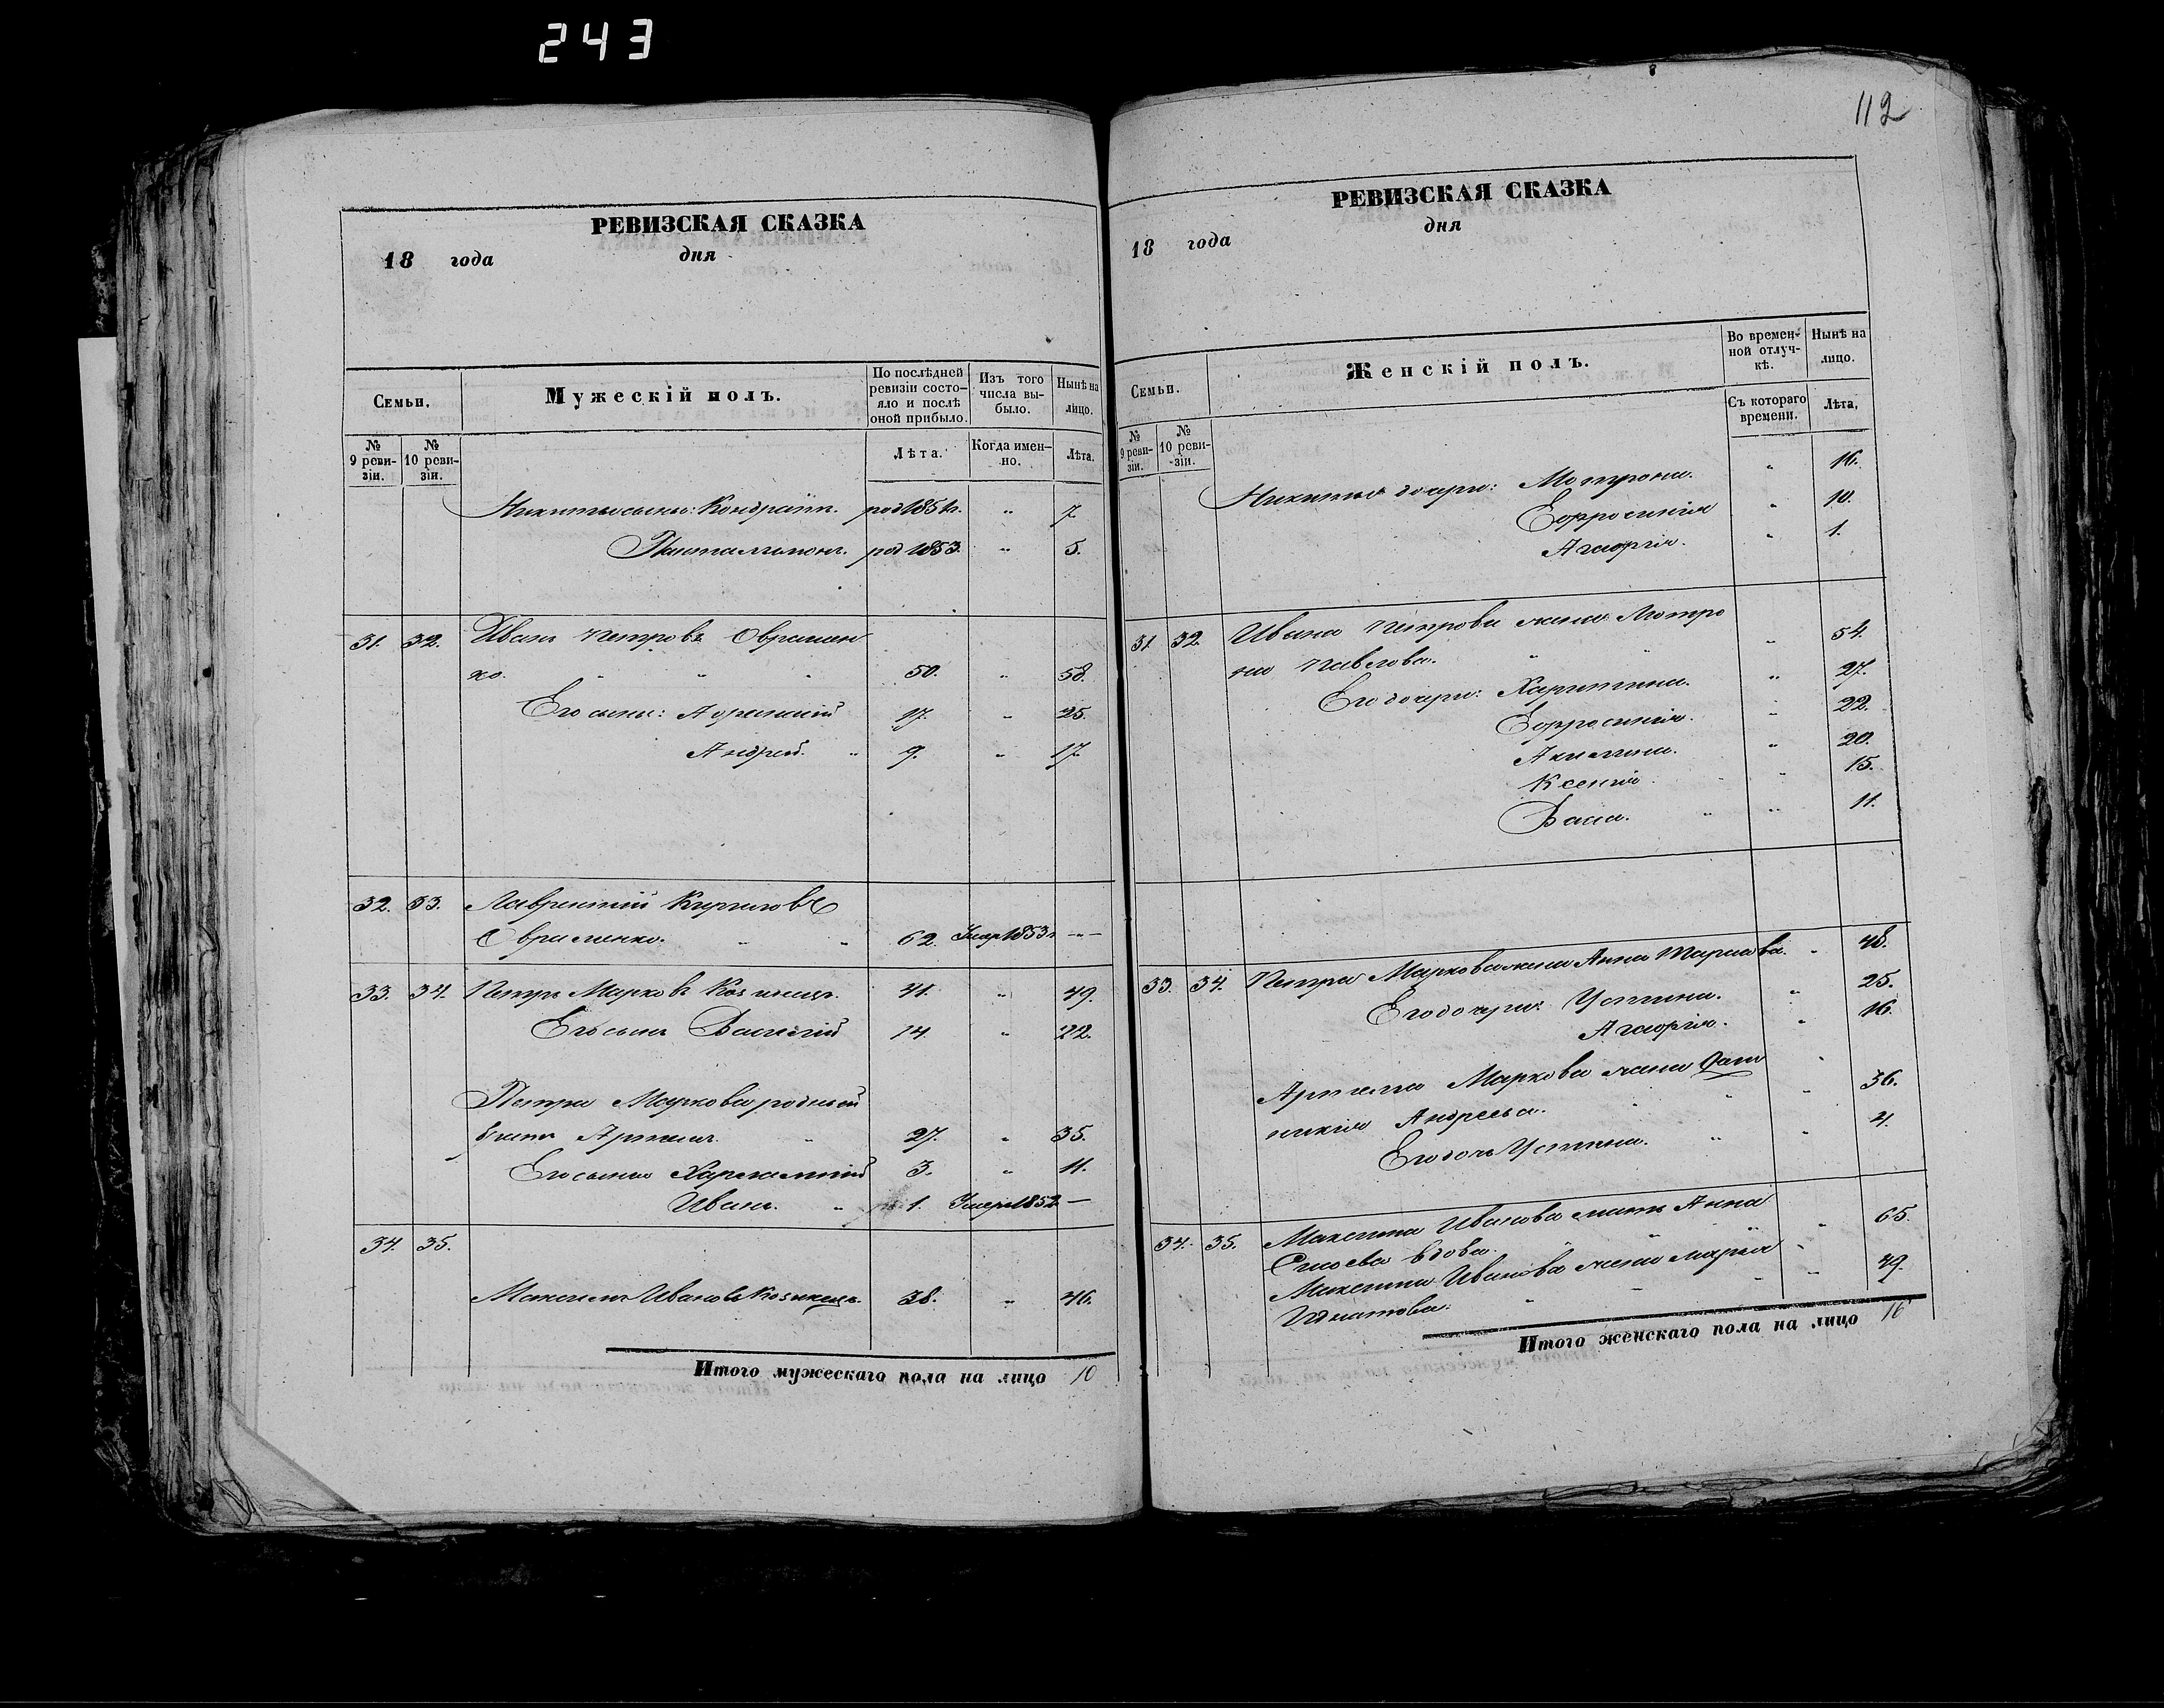 243
РЕВИЗСКАЯ СКАЗКА
18 года дня
Семьи.
Мужескій полъ.
По послѣдней ревизіи состо-
яло и послѣ
оной прибыло.
Изъ того
числа вы-
было.
Нынѣ на
лицо.
№ 9 реви-
зіи.
№ 10 реви-
зіи.
Лѣта.
Когда имен-
но.
Лѣта.
Никиты сыны: Кондратъ. род 1851 г. " 7.
Пантелимонъ. род 1853. " 5.
31. 32. Иванъ Петровъ Аврамен
ко. " " " 50. " 58.
Его сыны: 17. " 25.
Андрей. " 9. " 17.
32. 33. Лаврентій Кириловъ
Авраменко. " " 62. Умер 1853 г. —"—
33. 34. Петръ Марковъ 41. " 49.
Его сынъ Василій 14. " 22.
Петра Маркова родный
братъ Артемъ. " 27. " 35.
Его сыны Харлампій 3. " 11.
Иванъ. " 1. Умеръ 1852 —
34. 35.
Максимъ Ивановъ 38. " 46.
Итого мужескаго пола на лицо 10
112
РЕВИЗСКАЯ СКАЗКА
18 года дня
Семьи.
Женскій полъ.
Во времен-
ной отлуч-
кѣ.
Нынѣ на
лицо.
№ 9 реви-
зіи.
№ 10 реви-
зіи.
Съ котораго
времени.
Лѣта,
Никиты дочери: Мотрона. " 16.
Ефросинія " 10.
Агафія. " 1.
31. 32. Ивана Петрова жена Мотро
на Павлова. " " 54.
Его дочери: Харитина. " 27.
Ефросинія. " 22.
Акилина. " 20.
Ксенія. " " 15.
Васса. " " 11.
33. 34. Петра Маркова жена Анна " 48.
Его дочери: Устина. " 25.
Агафія. " 16.
Артема Маркова жена "
Андреева. " " 36.
Его дочь Устина. " " 4.
34. 35. Максима Иванова мать Анна
вдова. " " 65.
Максима Иванова жена Марья "
Игнатова. " " " 49.
Итого женскаго пола на лицо 16